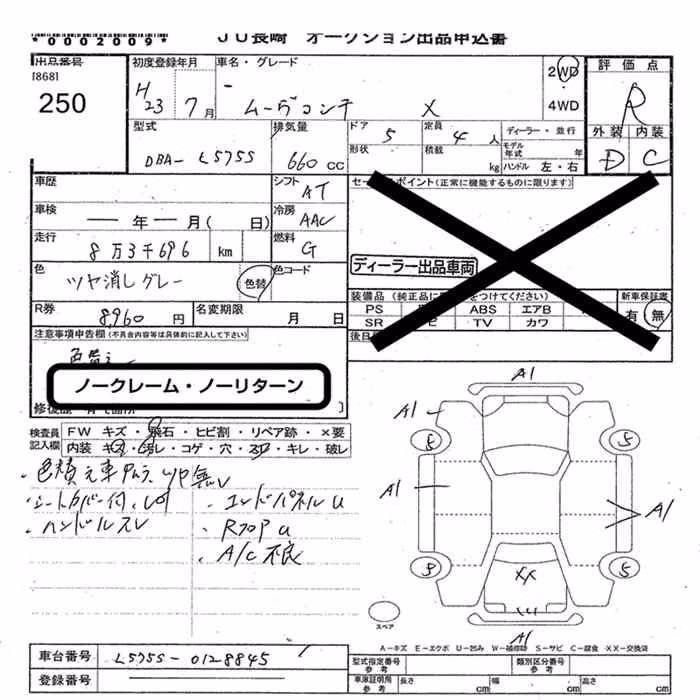 *0002009*
JU長崎 オークション出品申込書
出品番号 初度登録年月 車名・グレード 評価点
[868] 2WD R
250 H23 7月 ムーヴコンテ X 4WD
型式 排気量 ドア 5 定員 4 人 ディーラー・並行 外装 内装
DBA- L575S 660 cc 形状 積載 kg モデル年式 年 D C
ハンドル 左・右
車歴 シフト AT
車検 ー年ー月( 日) 冷房 AAC
走行 8万3千696 km 燃料 G
ディーラー出品車両
色 ツヤ消しグレー 色替 色コード
R券 8,960 円 名変期限 月 日
新車保証書
有 無
PS ABS エアB
SR TV カワ
注意事項申告欄(不具合内容等は具体的に記入して下さい)
ノークレーム・ノーリターン
検査員記入欄 FW キズ・飛石・ヒビ割・リペア跡・×要
内装 キズ・コゲ・穴・キレ・破レ
・シートカバー付 ・エンドパネルU
・ハンドルスレ ・RフロアU
・A/C不良
A1
A1
5 5
A1 A1
5
XX
スペア
A1
A-キズ E-エクボ U-凹み W-補修跡 S-サビ C-腐食 XX-交換済
車台番号 L575S-0128845
登録番号
型式指定番号 参考 類別区分番号 参考
車庫証明用 参考 長さ cm 幅 cm 高さ cm